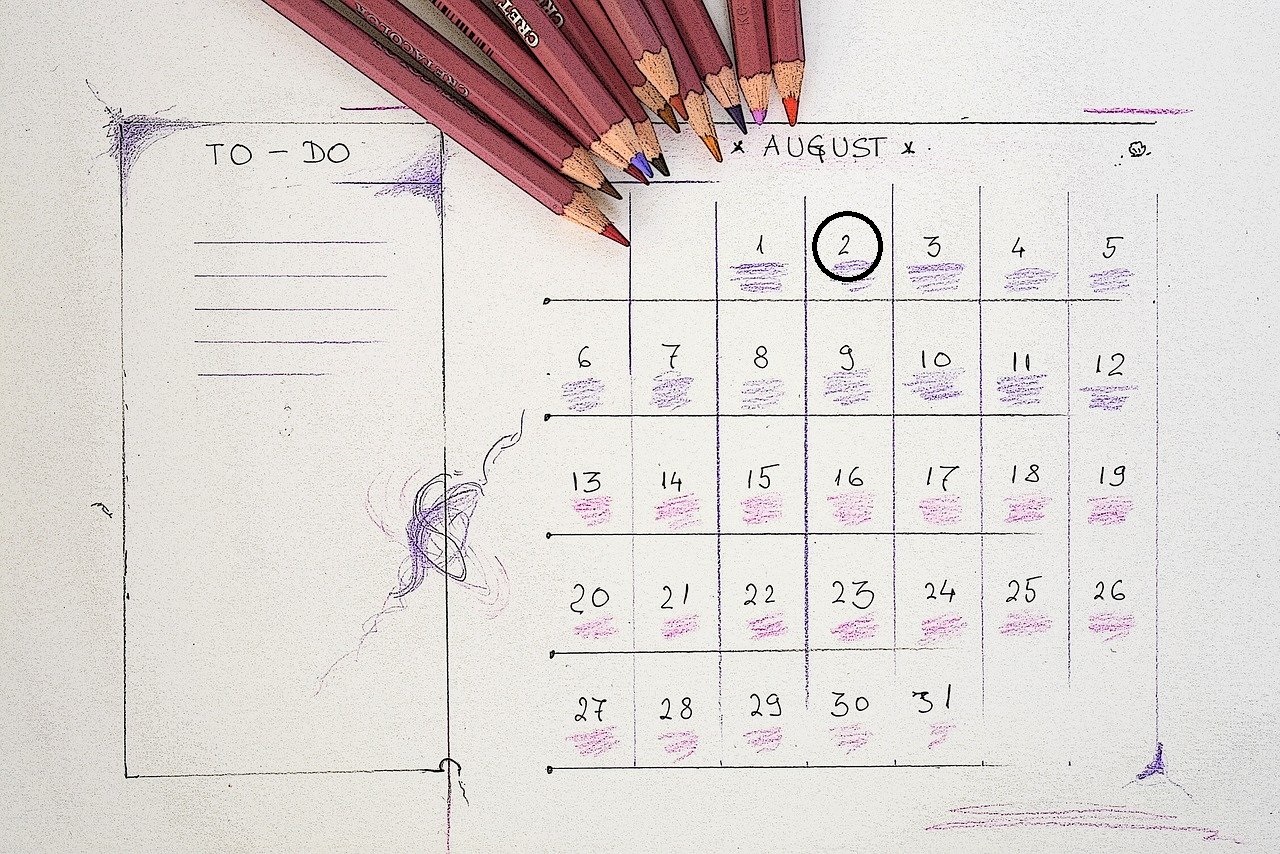 CRETACOLOR
CRET
CRE
TO - DO
* AUGUST *
1 2 3 4 5
6 7 8 9 10 11 12
13 14 15 16 17 18 19
20 21 22 23 24 25 26
27 28 29 30 31